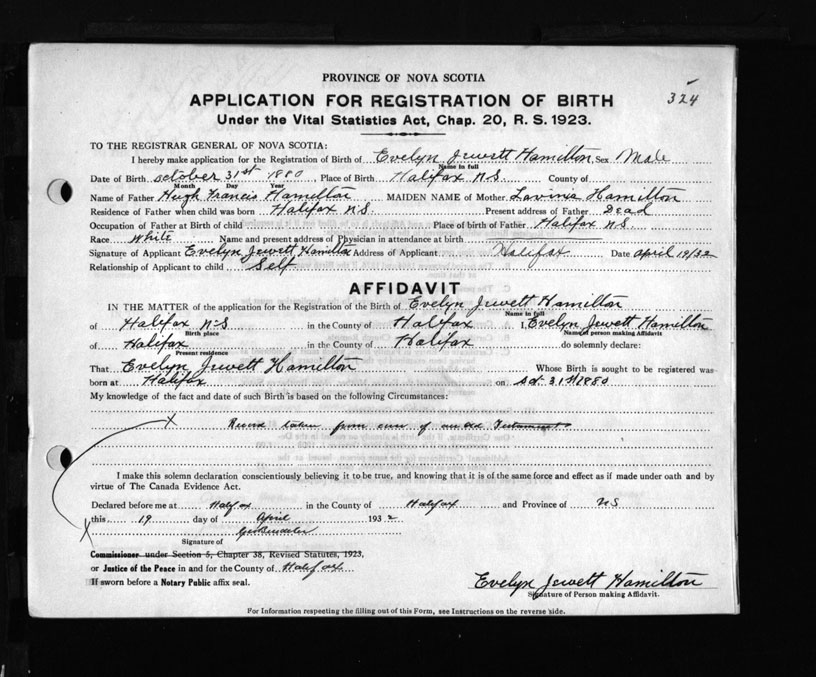 PROVINCE OF NOVA SCOTIA
324
APPLICATION FOR REGISTRATION OF BIRTH
Under the Vital Statistics Act, Chap. 20, R. S. 1923.
TO THE REGISTRAR GENERAL OF NOVA SCOTIA:
I hereby make application for the Registration of Birth of Evelyn Jewett Hamilton, Sex Male
Name in full
Date of Birth October 31st 1880, Place of Birth Halifax N.S County of
Month Day Year
Name of Father Hugh Francis Hamilton MAIDEN NAME of Mother Lavinia Hamilton
Residence of Father when child was born Halifax N.S. Present address of Father Dead
Occupation of Father at Birth of child Place of birth of Father Halifax N.S.
Race White Name and present address of Physician in attendance at birth
Signature of Applicant Evelyn Jewett Hamilton Address of Applicant Halifax Date April 19/32
Relationship of Applicant to child Self
AFFIDAVIT
IN THE MATTER of the application for the Registration of the Birth of Evelyn Jewett Hamilton
Name in full
of Halifax N.S in the County of Halifax I, Evelyn Jewett Hamilton
Birth place Name of person making Affidavit
of Halifax in the County of Halifax do solemnly declare:
Present residence
That Evelyn Jewett Hamilton Whose Birth is sought to be registered was
born at Halifax on Oct. 31st 1880
My knowledge of the fact and date of such Birth is based on the following Circumstances:
x Record taken from of an old Testament
I make this solemn declaration conscientiously believing it to be true, and knowing that it is of the same force and effect as if made under oath and by
virtue of The Canada Evidence Act.
Declared before me at Halifax in the County of Halifax and Province of NS
this 19 day of April 1932
Signature of
Commissioner under Section 5, Chapter 38, Revised Statutes, 1923,
or Justice of the Peace in and for the County of Halifax
If sworn before a Notary Public affix seal.
Evelyn Jewett Hamilton
Signature of Person making Affidavit.
For Information respecting the filling out of this Form, see Instructions on the reverse side.